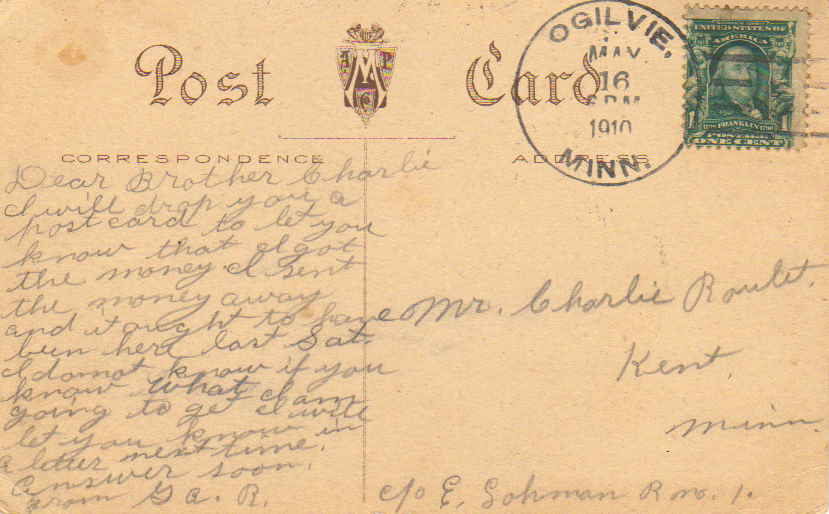 Post Card
OGILVIE,
MAY
16
PM
1910
MINN.
UNITED STATES OF
AMERICA
FRANKLIN
POSTAGE
1 1
ONE CENT
CORRESPONDENCE
ADDRESS
Dear Brother Charlie
I will drop you a
postcard to let you
know that I got
the money. I sent
the money away
and it ought to have
ben here last Sat.
I do not know if you
know what I am
going to get I will
let you know in
a letter next time.
answer soon.
from G a. R.
Mr. Charlie Roulet.
Kent.
Minn.
c/o E. Lohman R no. 1.